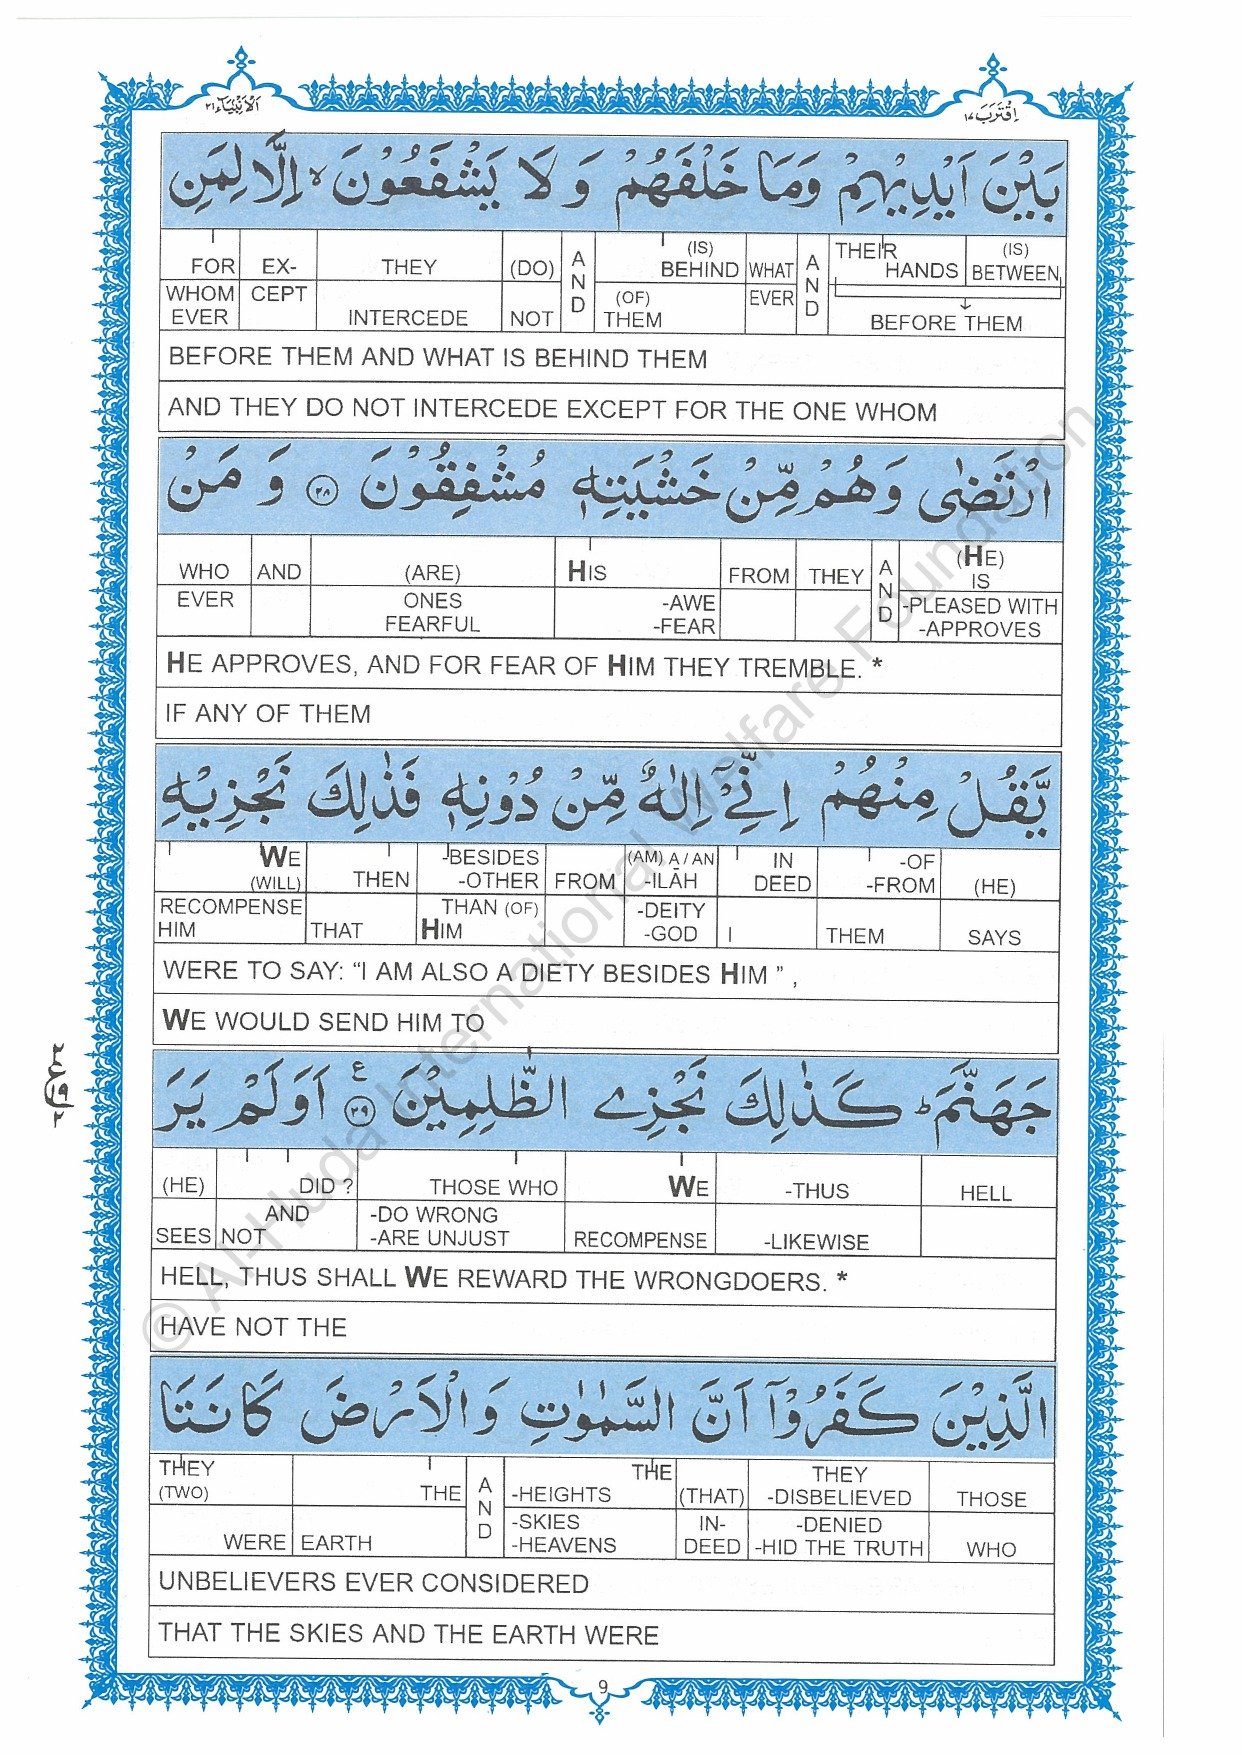 الانبیاء ۲۱
اقترب ۱۷
بَيْنَ اَيْدِيْهِمْ وَمَا خَلْفَهُمْ وَ لَا يَشْفَعُوْنَ ۙ اِلَّا لِمَنِ
FOR EX- THEY (DO) A (IS) BEHIND WHAT A THEIR HANDS (IS) BETWEEN
WHOM EVER CEPT INTERCEDE NOT N D (OF) THEM EVER N D BEFORE THEM
BEFORE THEM AND WHAT IS BEHIND THEM
AND THEY DO NOT INTERCEDE EXCEPT FOR THE ONE WHOM
ارْتَضٰى وَهُمْ مِّنْ خَشْيَتِهٖ مُشْفِقُوْنَ ۲۸ وَ مَنْ
WHO AND (ARE) HIS FROM THEY A (HE) IS
EVER ONES FEARFUL -AWE -FEAR N D -PLEASED WITH -APPROVES
HE APPROVES, AND FOR FEAR OF HIM THEY TREMBLE. *
IF ANY OF THEM
يَّقُلْ مِنْهُمْ اِنِّيْٓ اِلٰهٌ مِّنْ دُوْنِهٖ فَذٰلِكَ نَجْزِيْهِ
WE (WILL) THEN -BESIDES -OTHER FROM (AM) A / AN -ILĀH IN DEED -OF -FROM (HE)
RECOMPENSE HIM THAT THAN (OF) HIM -DEITY -GOD I THEM SAYS
WERE TO SAY: “I AM ALSO A DIETY BESIDES HIM ” ,
WE WOULD SEND HIM TO
جَهَنَّمَ ؕ كَذٰلِكَ نَجْزِي الظّٰلِمِيْنَ ۲۹ ع اَوَلَمْ يَرَ
(HE) DID ? THOSE WHO WE -THUS HELL
SEES NOT AND -DO WRONG -ARE UNJUST RECOMPENSE -LIKEWISE
HELL, THUS SHALL WE REWARD THE WRONGDOERS. *
HAVE NOT THE
۲ ع ۱۹ ۲
الَّذِيْنَ كَفَرُوْٓا اَنَّ السَّمٰوٰتِ وَالْاَرْضَ كَانَتَا
THEY (TWO) THE A THE -HEIGHTS (THAT) THEY -DISBELIEVED THOSE
WERE EARTH N D -SKIES -HEAVENS IN- DEED -DENIED -HID THE TRUTH WHO
UNBELIEVERS EVER CONSIDERED
THAT THE SKIES AND THE EARTH WERE
9
© Al-Huda International Welfare Foundation